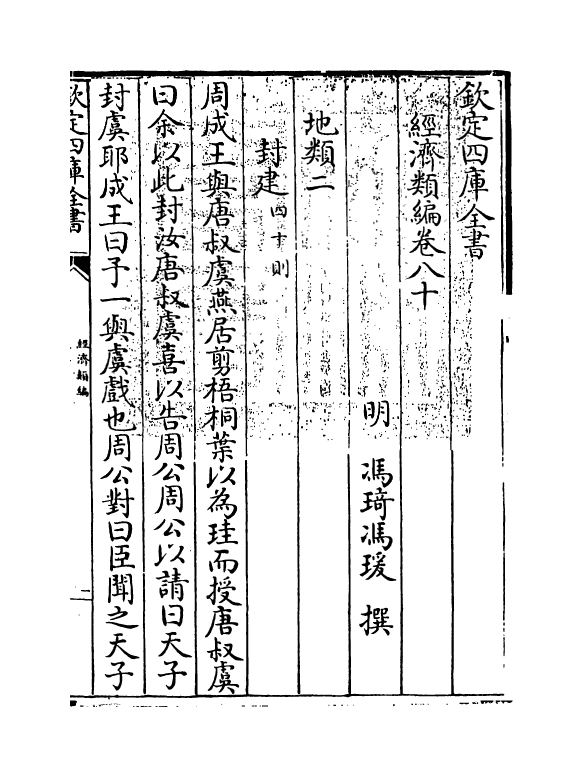 欽定四庫全書
經濟類編卷八十
明 馮琦馮瑗 撰
地類二
封建四十則
周成王與唐叔虞燕居剪梧桐葉以為珪而授唐叔虞
曰余以此封汝唐叔虞喜以告周公周公以請曰天子
封虞耶成王曰予一與虞戲也周公對曰臣聞之天子
欽定四庫全書
經濟類編
二